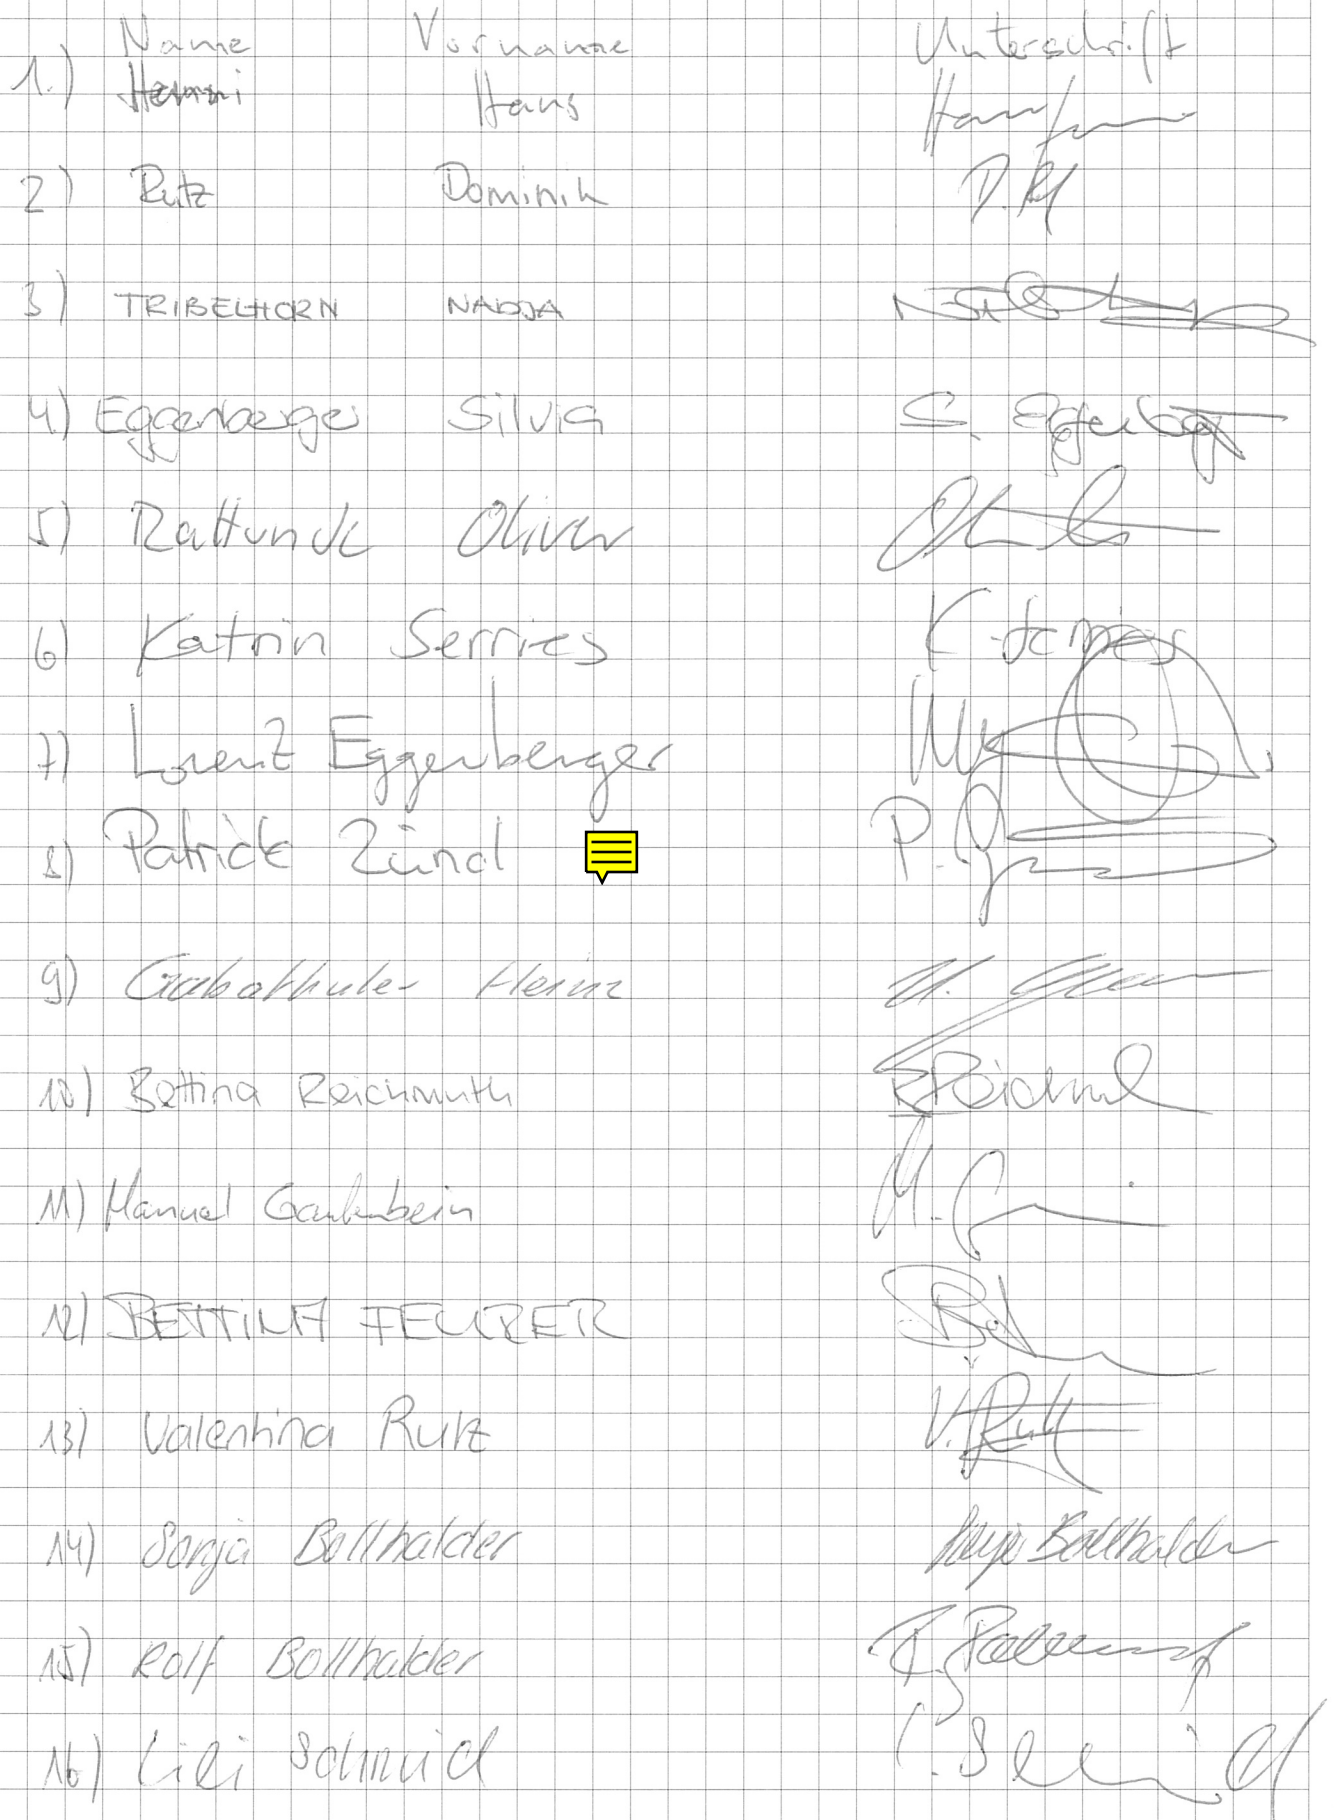 Name Vorname Unterschrift
1.) Hemmi Hans
2) Rutz Dominik D. Rutz
3) TRIBELHORN NADJA
4) Eggenberger Silvia S. Eggenberger
5) Rattunde Oliver
6) Katrin Serries K. Serries
7) Lorenz Eggenberger
8) Patrick Zünd
9) Gabathuler Heinz
10) Bettina Reichmuth
11) Manuel Gantenbein
12) BETTINA FEURER
13) Valentina Rutz V. Rutz
14) Sonja Bollhalder Sonja Bollhalder
15) Rolf Bollhalder
16) Lili Schmid L. Schmid